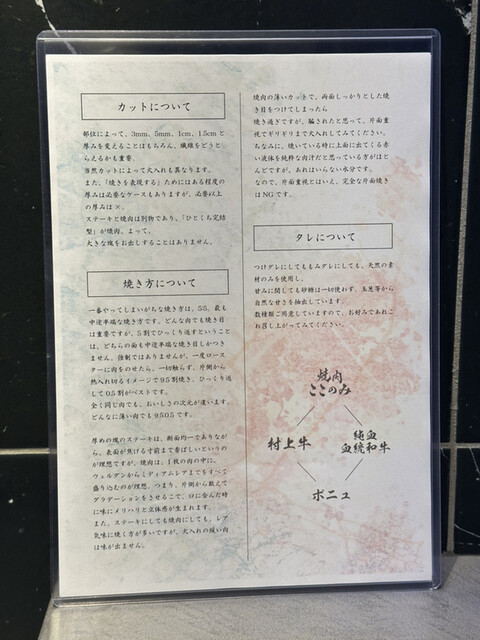 カットについて
部位によって、3mm、5mm、1cm、1.5cmと
厚みを変えることはもちろん、繊維をどうと
らえるかも重要。
当然カットによって火入れも異なります。
また、「焼きを表現する」ためにはある程度の
厚みは必要なケースもありますが、必要以上
の厚みは×。
ステーキと焼肉は別物であり、「ひとくち完結
型」が焼肉。よって、
大きな塊をお出しすることはありません。
焼き方について
一番やってしまいがちな焼き方は、5:5。最も
中途半端な焼き方です。どんな肉でも焼き目
は重要ですが、5割でひっくり返すということ
は、どちらの面も中途半端な焼き目しかつき
ません。強制ではありませんが、一度ロース
ターに肉をのせたら、一切触らず、片側から
熱入れ切るイメージで9.5割焼き、ひっくり返
して0.5割がベストです。
全く同じ肉でも、おいしさの次元が違います。
どんなに薄い肉でも9.5:0.5です。
厚めの塊のステーキは、断面均一でありなが
ら、表面が焦げる寸前まで香ばしいというの
が理想ですが、焼肉は、1枚の肉の中に、
ウェルダンからミディアムレアまでをすべて
盛り込むのが理想。つまり、片側から敢えて
グラデーションをきせることで、口に含んだ時
に味にメリハリと立体感が生まれます。
また、ステーキにしても焼肉にしても、レア
気味に焼く方が多いですが、火入れの緩い肉
は味が出ません。
焼肉の薄いカットで、両面しっかりとした焼
き目をつけてしまったら
焼き過ぎですが、騙されたと思って、片面重
視でギリギリまで火入れしてみてください。
ちなみに、焼いている時に上面に出てくる赤
い液体を純粋な肉汁だと思っている方がほと
んどですが、あれはいらない水分です。
なので、片面重視とはいえ、完全な片面焼き
はNGです。
タレについて
つけダレにしてももみダレにしても、天然の素
材のみを使用し、
甘みに関しても砂糖は一切使わず、玉葱等から
自然な甘さを抽出しています。
数種類ご用意していますので、お好みであれこ
れ召し上がってみてください。
焼肉
ここのみ
村上牛
純血
血統和牛
ボニュ